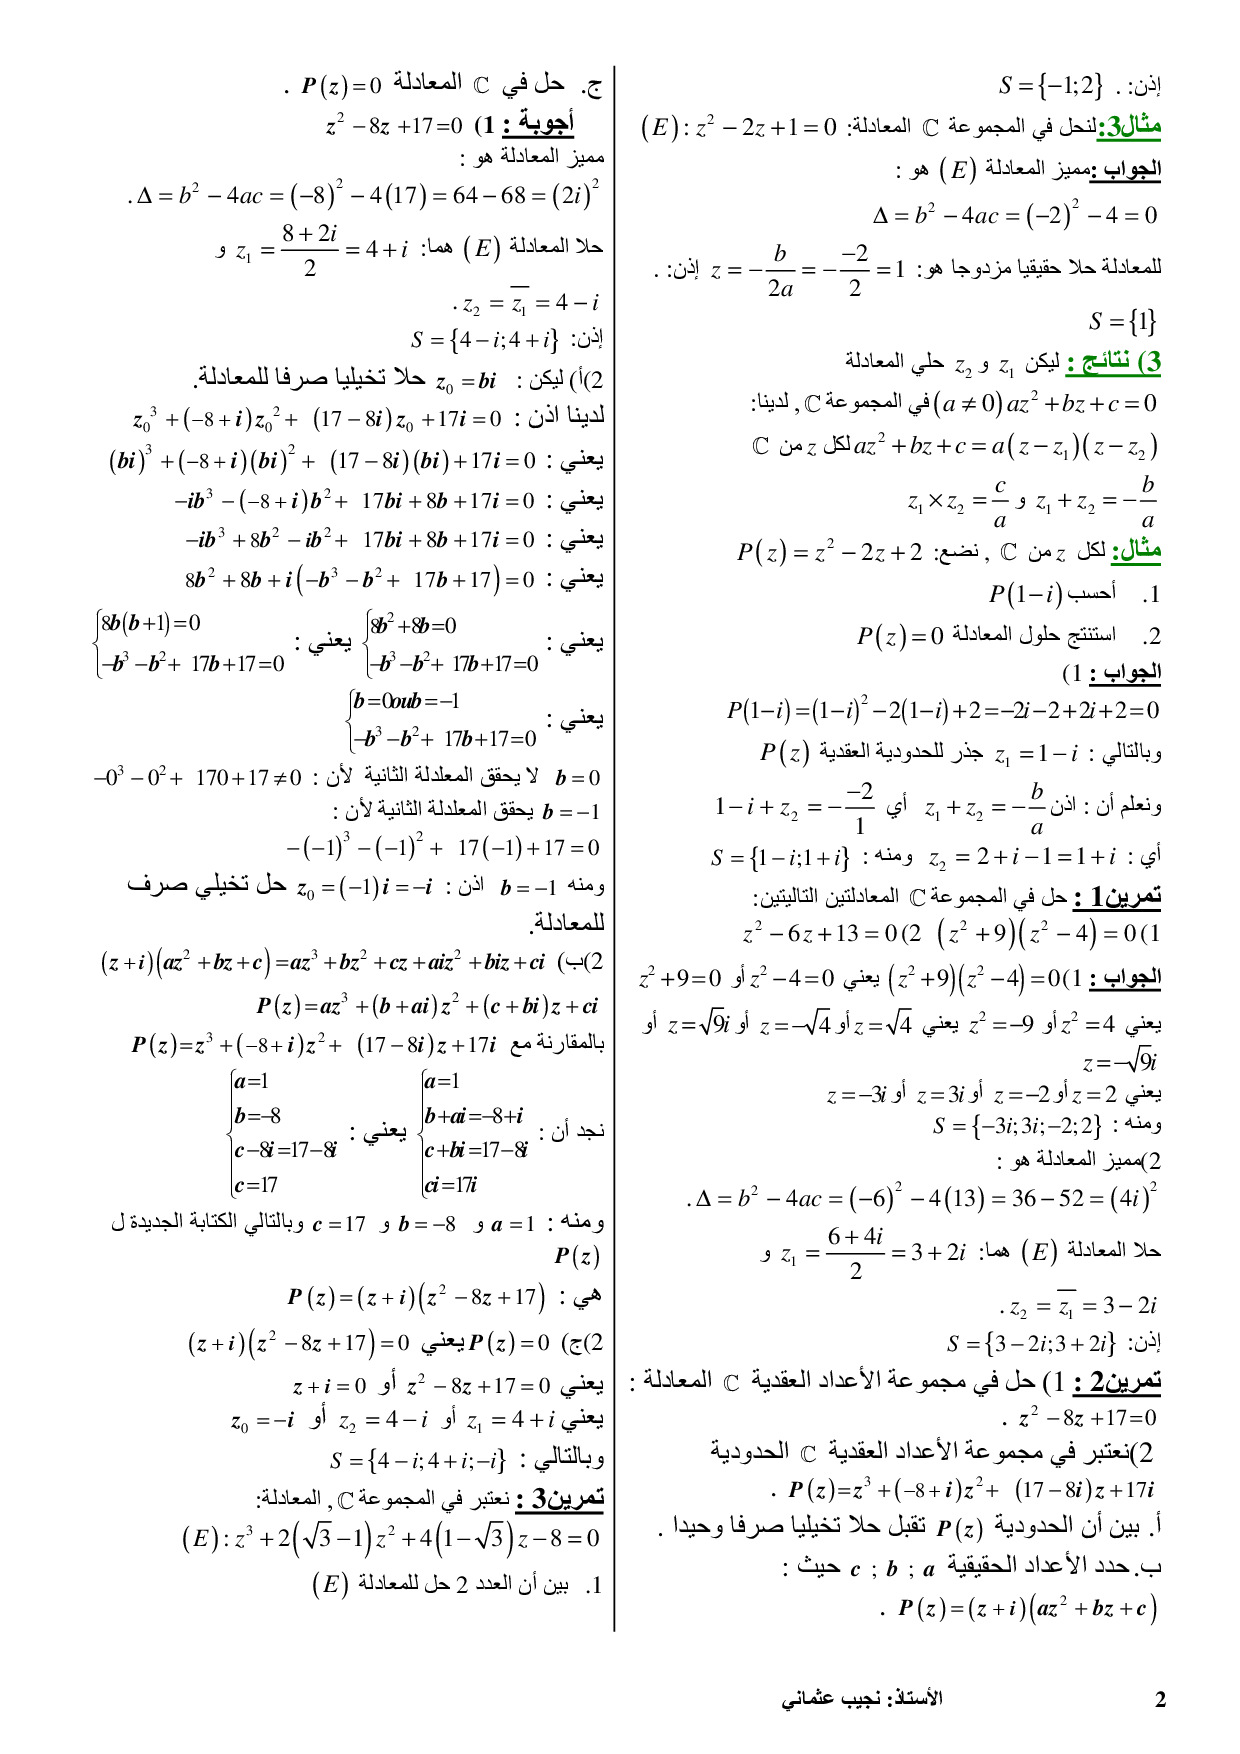 إذن: . S = {−1;2}
مثال3: لنحل في المجموعة ℂ المعادلة: (E): z² − 2z + 1 = 0
الجواب : مميز المعادلة (E) هو :
Δ = b² − 4ac = (−2)² − 4 = 0
للمعادلة حلا حقيقيا مزدوجا هو: z = −b/2a = −(−2)/2 = 1 إذن: .
S = {1}
3) نتائج : ليكن z₁ و z₂ حلي المعادلة
az² + bz + c = 0 (a ≠ 0) في المجموعة ℂ , لدينا:
az² + bz + c = a(z − z₁)(z − z₂) لكل z من ℂ
z₁ + z₂ = −b/a و z₁ × z₂ = c/a
مثال: لكل z من ℂ , نضع: P(z) = z² − 2z + 2
1. أحسب P(1−i)
2. استنتج حلول المعادلة P(z) = 0
الجواب : 1)
P(1−i) = (1−i)² − 2(1−i) + 2 = −2i − 2 + 2i + 2 = 0
وبالتالي : z₁ = 1 − i جذر للحدودية العقدية P(z)
ونعلم أن : اذن z₁ + z₂ = −b/a أي 1 − i + z₂ = −(−2)/1
أي : z₂ = 2 + i − 1 = 1 + i ومنه : S = {1 − i;1 + i}
تمرين1 : حل في المجموعة ℂ المعادلتين التاليتين:
1) (z² + 9)(z² − 4) = 0 2) z² − 6z + 13 = 0
الجواب : 1) (z² + 9)(z² − 4) = 0 يعني z² − 4 = 0 أو z² + 9 = 0
يعني z² = 4 أو z² = −9 يعني z = √4 أو z = −√4 أو z = √9i أو
z = −√9i
يعني z = 2 أو z = −2 أو z = 3i أو z = −3i
ومنه : S = {−3i;3i;−2;2}
2) مميز المعادلة هو :
Δ = b² − 4ac = (−6)² − 4(13) = 36 − 52 = (4i)² .
حلا المعادلة (E) هما: z₁ = (6 + 4i)/2 = 3 + 2i و
z₂ = z̄₁ = 3 − 2i .
إذن: S = {3 − 2i;3 + 2i}
تمرين2 : 1) حل في مجموعة الأعداد العقدية ℂ المعادلة :
z² − 8z + 17 = 0 .
2) نعتبر في مجموعة الأعداد العقدية ℂ الحدودية
P(z) = z³ + (−8 + i)z² + (17 − 8i)z + 17i .
أ. بين أن الحدودية P(z) تقبل حلا تخيليا صرفا وحيدا .
ب. حدد الأعداد الحقيقية a ; b ; c حيث :
P(z) = (z + i)(az² + bz + c) .
ج. حل في ℂ المعادلة P(z) = 0 .
أجوبة : 1) z² − 8z + 17 = 0
مميز المعادلة هو :
Δ = b² − 4ac = (−8)² − 4(17) = 64 − 68 = (2i)² .
حلا المعادلة (E) هما: z₁ = (8 + 2i)/2 = 4 + i و
z₂ = z̄₁ = 4 − i .
إذن: S = {4 − i;4 + i}
2)أ) ليكن : z₀ = bi حلا تخيليا صرفا للمعادلة.
لدينا اذن : z₀³ + (−8 + i)z₀² + (17 − 8i)z₀ + 17i = 0
يعني : (bi)³ + (−8 + i)(bi)² + (17 − 8i)(bi) + 17i = 0
يعني : −ib³ − (−8 + i)b² + 17bi + 8b + 17i = 0
يعني : −ib³ + 8b² − ib² + 17bi + 8b + 17i = 0
يعني : 8b² + 8b + i(−b³ − b² + 17b + 17) = 0
يعني : { 8b² + 8b = 0 ; −b³ − b² + 17b + 17 = 0 يعني : { 8b(b + 1) = 0 ; −b³ − b² + 17b + 17 = 0
يعني : { b = 0 ou b = −1 ; −b³ − b² + 17b + 17 = 0
b = 0 لا يحقق المعلدلة الثانية لأن : −0³ − 0² + 170 + 17 ≠ 0
b = −1 يحقق المعلدلة الثانية لأن :
−(−1)³ − (−1)² + 17(−1) + 17 = 0
ومنه b = −1 اذن : z₀ = (−1)i = −i حل تخيلي صرف
للمعادلة.
2)ب) (z + i)(az² + bz + c) = az³ + bz² + cz + aiz² + biz + ci
P(z) = az³ + (b + ai)z² + (c + bi)z + ci
بالمقارنة مع P(z) = z³ + (−8 + i)z² + (17 − 8i)z + 17i
نجد أن : { a = 1 ; b + ai = −8 + i ; c + bi = 17 − 8i ; ci = 17i يعني : { a = 1 ; b = −8 ; c − 8i = 17 − 8i ; c = 17
ومنه : a = 1 و b = −8 و c = 17 وبالتالي الكتابة الجديدة ل
P(z)
هي : P(z) = (z + i)(z² − 8z + 17)
2)ج) P(z) = 0 يعني (z + i)(z² − 8z + 17) = 0
يعني z² − 8z + 17 = 0 أو z + i = 0
يعني z₁ = 4 + i أو z₂ = 4 − i أو z₀ = −i
وبالتالي : S = {4 − i;4 + i;−i}
تمرين3 : نعتبر في المجموعة ℂ , المعادلة:
(E): z³ + 2(√3 − 1)z² + 4(1 − √3)z − 8 = 0
1. بين أن العدد 2 حل للمعادلة (E)
الأستاذ: نجيب عثماني
2